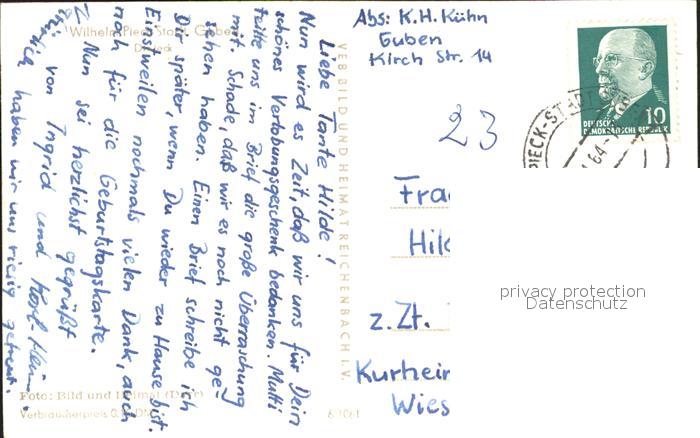 Wilhelm-Pieck-Stadt Guben
Dreieck
Liebe Tante Hilde!
Nun wird es Zeit, daß wir uns für Dein
schönes Verlobungsgeschenk bedanken. Mutti
teilte uns im Brief die große Überraschung
mit. Schade, daß wir es noch nicht ge-
sehen haben. Einen Brief schreibe ich
Dir später, wenn Du wieder zu Hause bist.
Einstweilen nochmals vielen Dank, auch
noch für die Geburtstagskarte.
Nun sei herzlichst gegrüßt
von Ingrid und Karl-Hein
haben wir uns riesig gefreut.
VEB BILD UND HEIMAT REICHENBACH I. V.
Foto: Bild und Heimat
Verbraucherpreis
Abs: K.H. Kühn
Guben
Kirch Str. 14
23
DEUTSCHE
DEMOKRATISCHE REPUBLIK
10
PIECK-STADT
64
Fra
Hil
z.Zt.
Kurhei
Wies
privacy protection
Datenschutz